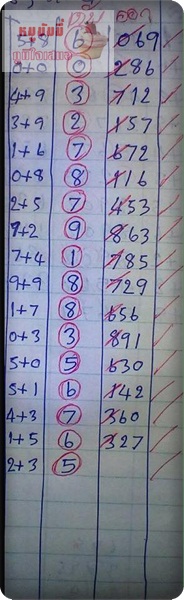 5+8 6 1069
0+0 0 286
4+9 3 712
3+9 2 157
1+6 7 672
0+8 8 116
2+5 7 453
7+2 9 863
7+4 1 785
9+9 8 729
1+7 8 656
0+3 3 891
5+0 5 630
5+1 6 142
4+3 7 360
1+5 6 327
2+3 5